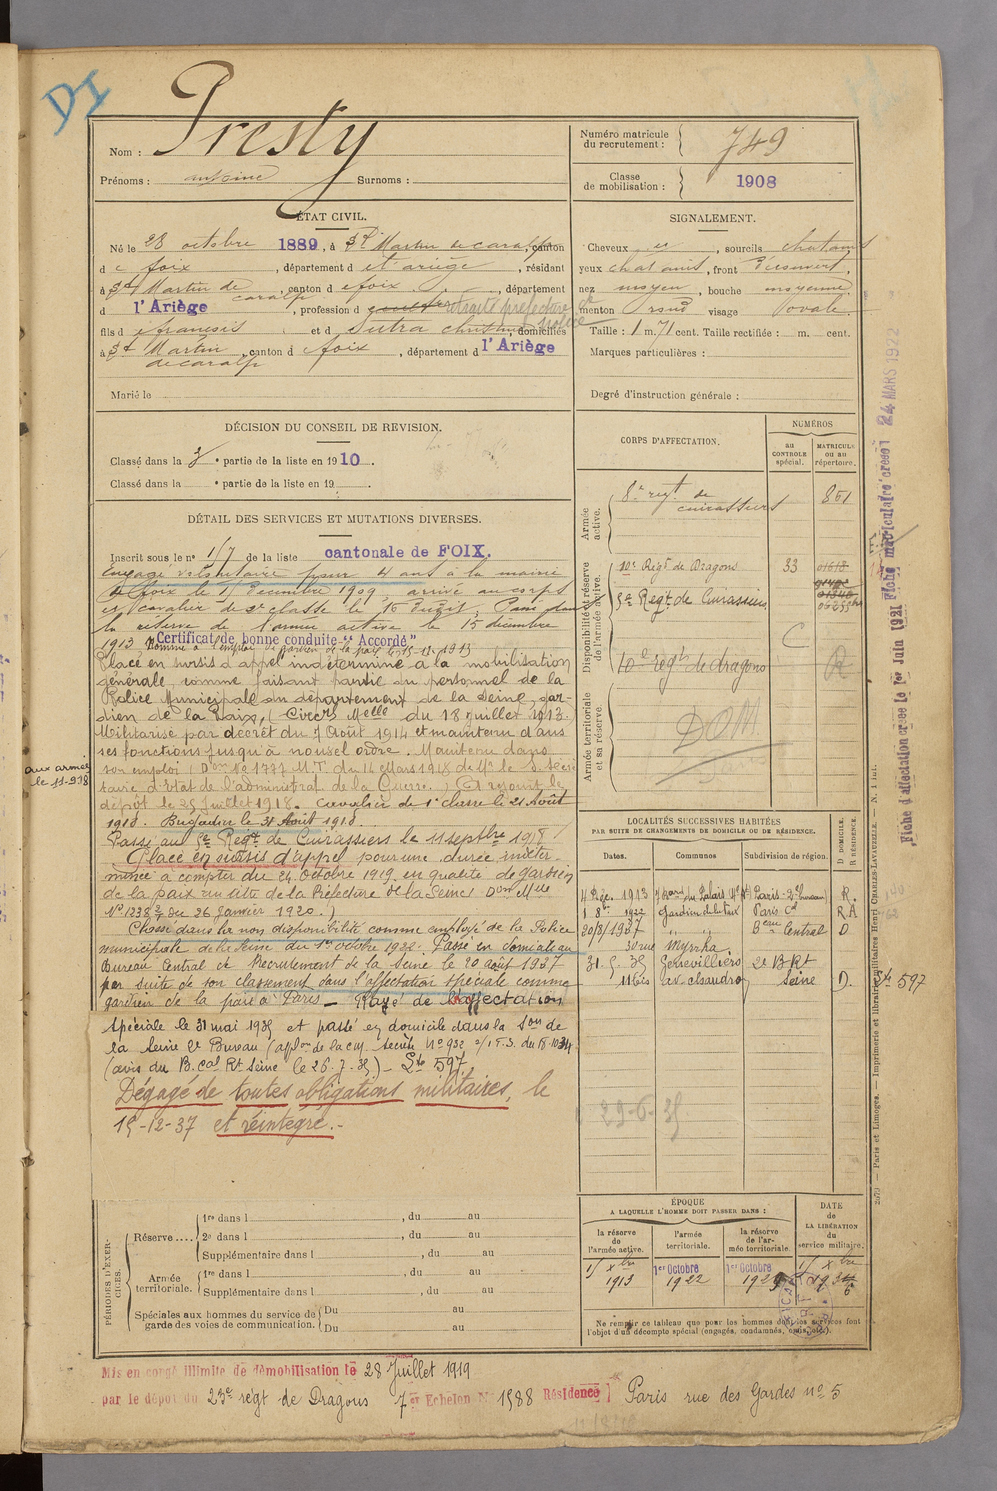 DI
Nom : Presty
Prénoms : antoine Surnoms :
Numéro matricule du recrutement : 749
Classe de mobilisation : 1908
ÉTAT CIVIL.
Né le 28 octobre 1889, à St Martin de caralp, canton
de foix, département d et ariège, résidant
à St Martin de caralp, canton d e foix, département
d l'Ariège, profession d retraité préfecture de police
fils d e françois et d Sutra christine, domiciliés
à St Martin de caralp, canton d e foix, département d l'Ariège
Marié le
SIGNALEMENT.
Cheveux et, sourcils chatains
yeux chatains, front découvert,
nez moyen, bouche moyenne
menton rond visage ovale.
Taille : 1 m. 71 cent. Taille rectifiée : m. cent.
Marques particulières :
Degré d'instruction générale :
DÉCISION DU CONSEIL DE REVISION.
Classé dans la 3e partie de la liste en 1910.
Classé dans la e partie de la liste en 19 .
DÉTAIL DES SERVICES ET MUTATIONS DIVERSES.
Inscrit sous le no 17 de la liste cantonale de FOIX.
Engagé volontaire pour 4 ans à la mairie
de foix le 15 décembre 1909, arrivé au corps
et cavalier de 2e classe le 16 dudit. Passé dans
la réserve de l'armée active le 15 décembre
1913 "Certificat de bonne conduite "Accordé"
Nommé à l'emploi de gardien de la paix le 15-12-1913
Placé en sursis d'appel indéterminé à la mobilisation
générale comme faisant partie du personnel de la
Police Municipale du département de la Seine, gar-
dien de la Paix, (Circre Melle du 18 juillet 1913.
Militarisé par décret du 7 Août 1914 et maintenu dans
ses fonctions jusqu'à nouvel ordre. Maintenu dans
son emploi (Don No 1777 M.T. du 14 Mars 1918 de Mr le S. Secré
taire d'Etat de l'administrat de la Guerre.) A rejoint le
dépôt le 25 Juillet 1918. Cavalier de 1e classe le 21 Août
1918. Brigadier le 31 Août 1918.
aux armées le 11-9-18
Passé au 5e Régt de Cuirassiers le 11 septbre 1918
Placé en sursis d'appel pour une durée indéter-
minée à compter du 24 Octobre 1919 en qualité de gardien
de la paix au titre de la Préfecture de la Seine Don Mlle
No 1238 2/7 du 26 Janvier 1920.)
Classé dans la non disponibilité comme employé de la Police
municipale de la Seine du 1er octobre 1922. Passé en domicile au
Bureau Central de Recrutement de la Seine le 20 août 1937
par suite de son classement dans l'affectation spéciale comme
gardien de la paix à Paris - Rayé de l'affectation
spéciale le 31 mai 1935 et passé en domicile dans la Son de
la Seine 2e Bureau (applon de la C.M. secrète No 932 2/1 E.S. du 18-10-34
(avis du B.cal Rt Seine le 26.7.35) - Ste 597.
Dégagé de toutes obligations militaires, le
15-12-37 et réintégré.-
CORPS D'AFFECTATION.
NUMÉROS
au CONTROLE spécial.
MATRICULE ou au répertoire.
Armée active.
8e regt de cuirassiers 861
Disponibilité et réserve de l'armée active.
10e Régt de Dragons 33
5e Regt de Cuirassiers
10e regt de dragons
C
R
Armée territoriale et sa réserve.
DOM
LOCALITÉS SUCCESSIVES HABITÉES
PAR SUITE DE CHANGEMENTS DE DOMICILE OU DE RÉSIDENCE.
Dates. Communes Subdivision de région. D DOMICILE. R RÉSIDENCE.
4 Déc. 1913 Paris-2e bureau R.
1 8bre 1922 Gardien de la Paix Paris Cal R.A
20/8/1937 " " Beau Central D
30 rue Myrrha
31.5.35 Genevilliers 2e B Rt
11 bis av. Seine D. Ste 597
29-6-35
ÉPOQUE
A LAQUELLE L'HOMME DOIT PASSER DANS :
la réserve de l'armée active.
l'armée territoriale.
la réserve de l'armée territoriale.
DATE de LA LIBÉRATION du service militaire.
15 Xbre 1913
1er Octobre 1922
1er Octobre 192
15 Xbre 193
Ne remplir ce tableau que pour les hommes dont les services font
l'objet d'un décompte spécial (engagés, condamnés, omis, etc.).
PÉRIODES D'EXERCICES.
Réserve....
1re dans l , du au
2e dans l , du au
Supplémentaire dans l , du au
Armée territoriale.
1re dans l , du au
Supplémentaire dans l , du au
Spéciales aux hommes du service de garde des voies de communication.
Du au
Du au
Mis en congé illimité de démobilisation le 28 Juillet 1919
par le dépôt du 23e régt de Dragons 7e Echelon No 1588 Résidence Paris rue des Gardes no 5
Fiche d'affectation créée le 1er Juin 1921 Fiche matriculaire créée 24 MARS 1922
2679 — Paris et Limoges. — Imprimerie et librairie militaires Henri CHARLES-LAVAUZELLE.